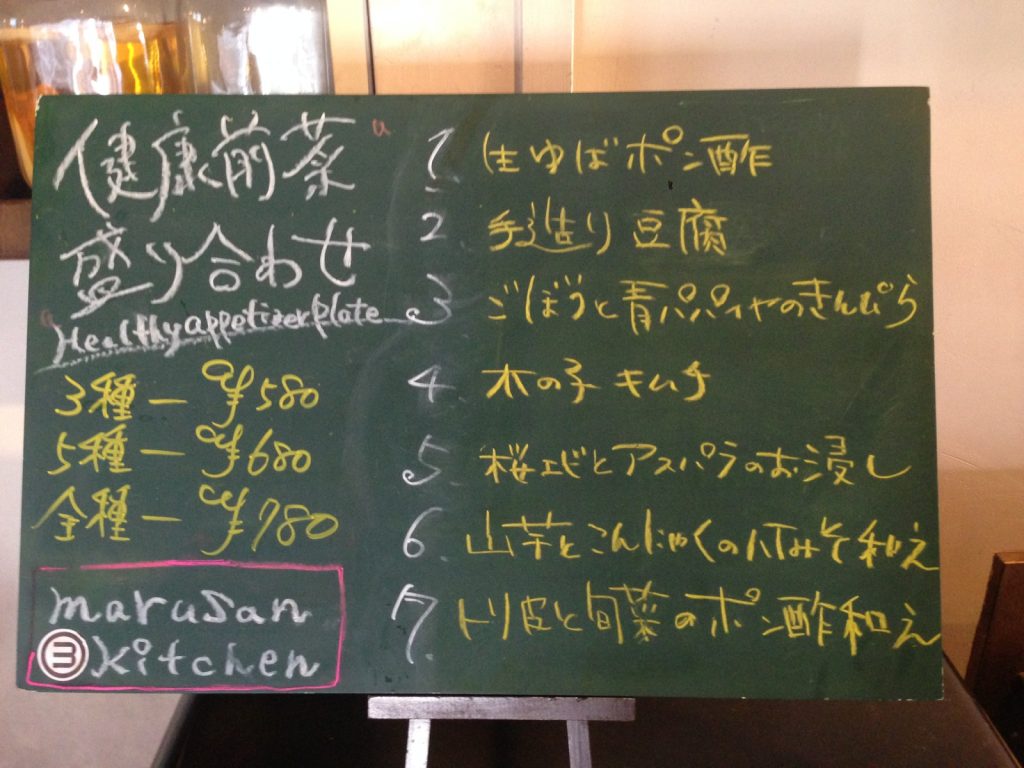 健康前菜
盛り合わせ
Healthy appetizer plate
3種ー ¥580
5種ー ¥680
全種ー ¥780
marusan
③ kitchen
1. 生ゆばポン酢
2. 手造り豆腐
3 ごぼうと青パパイヤのきんぴら
4 木の子キムチ
5. 桜エビとアスパラのお浸し
6. 山芋とこんにゃくの八丁みそ和え
7. トリ皮と旬菜のポン酢和え